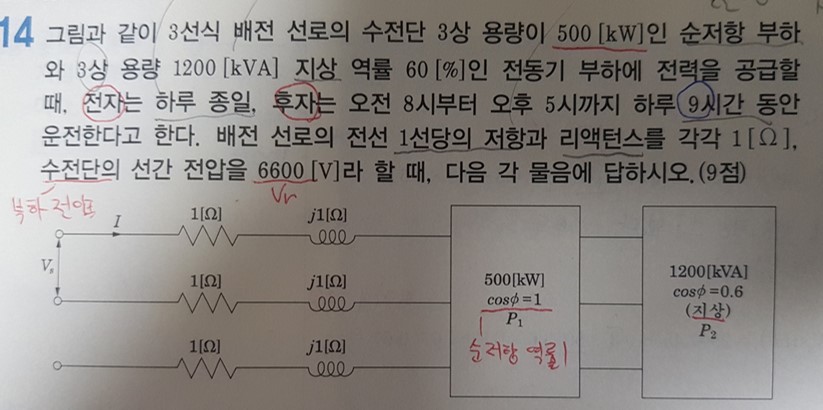 14 그림과 같이 3선식 배전 선로의 수전단 3상 용량이 500 [kW]인 순저항 부하
와 3상 용량 1200 [kVA] 지상 역률 60 [%]인 전동기 부하에 전력을 공급할
때, 전자는 하루 종일, 후자는 오전 8시부터 오후 5시까지 하루 9시간 동안
운전한다고 한다. 배전 선로의 전선 1선당의 저항과 리액턴스를 각각 1[Ω],
수전단의 선간 전압을 6600 [V]라 할 때, 다음 각 물음에 답하시오. (9점)
부하 전압
Vr
I
1[Ω]
j1[Ω]
Vs
1[Ω]
j1[Ω]
1[Ω]
j1[Ω]
500[kW]
cosϕ=1
P₁
순저항 역률1
1200[kVA]
cosϕ=0.6
(지상)
P₂